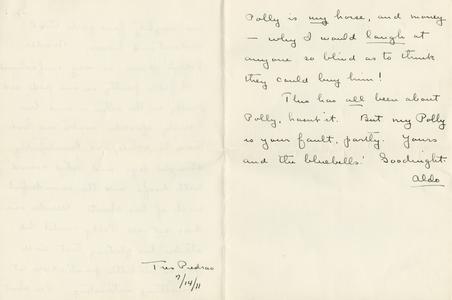 Polly is my horse, and money
– why I would laugh at
anyone so blind as to think
they could buy him!
This has all been about
Polly, hasn't it. But my Polly
is your fault, partly. Yours
and the bluebells! Goodnight.
Aldo
Tres Piedras
7/14/11